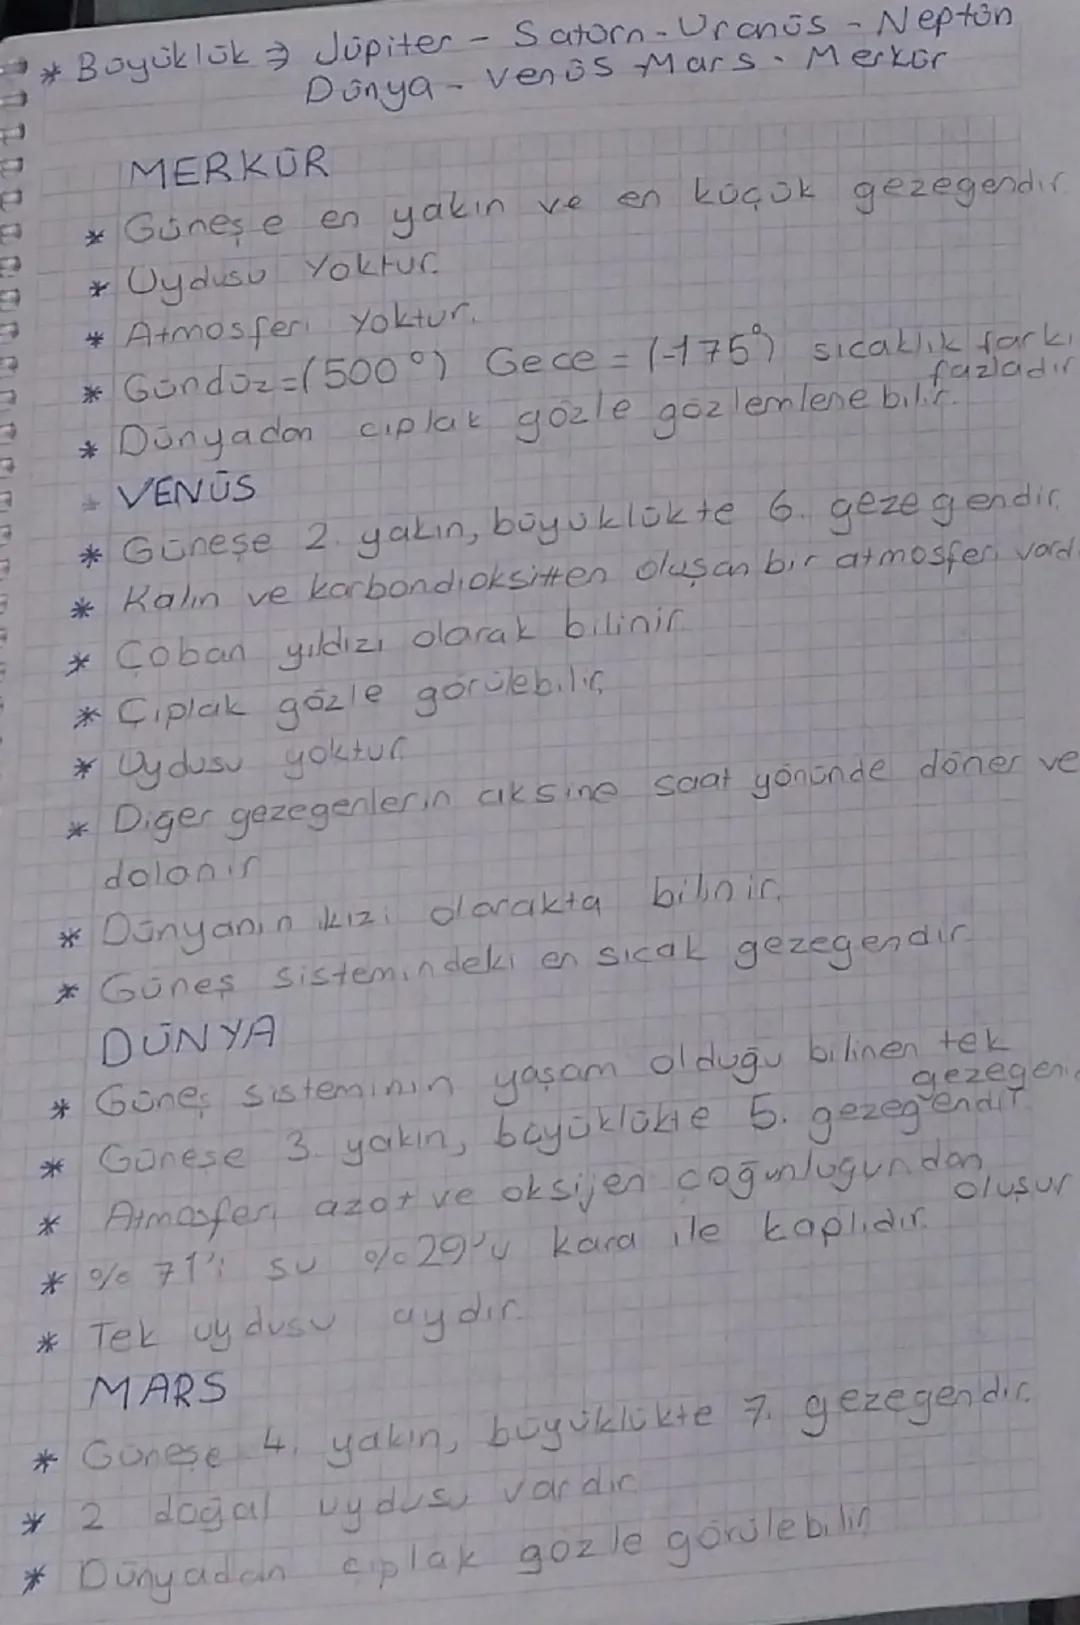 * Büyüklük → Jüpiter - Satürn - Uranüs - Neptün
Dünya - Venüs - Mars - Merkür
MERKÜR
* Güneşe en yakın ve en küçük gezegendir.
* Uydusu Yoktur.
* Atmosferi Yoktur.
* Gündüz=(500°) Gece=(-175°) sıcaklık farkı
fazladır
* Dünyadan çıplak gözle gözlemlenebilir.
VENÜS
* Güneşe 2. yakın, büyüklükte 6. gezegendir.
* Kalın ve karbondioksitten oluşan bir atmosferi vard
* Çoban yıldızı olarak bilinir.
* Çıplak gözle görülebilir.
* Uydusu yoktur.
* Diğer gezegenlerin aksine saat yönünde döner ve
dolanır
* Dünyanın ikizi olarakta bilinir.
* Güneş sistemindeki en sıcak gezegendir.
DÜNYA
* Güneş sisteminin yaşam olduğu bilinen tek
gezegeni
* Güneşe 3. yakın, büyüklükte 5. gezegendir.
* Atmosferi azot ve oksijen çoğunluğundan
oluşur
* %71'i su %29'u kara ile kaplıdır.
* Tek uydusu aydır.
MARS
* Güneşe 4. yakın, büyüklükte 7. gezegendir.
* 2 doğal uydusu vardır
* Dünyadan çıplak gözle görülebilir